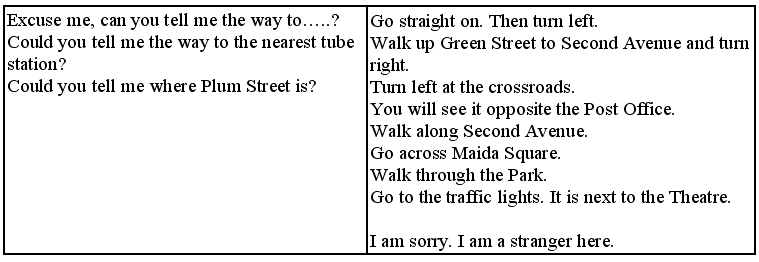 Excuse me, can you tell me the way to…..?
Could you tell me the way to the nearest tube
station?
Could you tell me where Plum Street is?
Go straight on. Then turn left.
Walk up Green Street to Second Avenue and turn
right.
Turn left at the crossroads.
You will see it opposite the Post Office.
Walk along Second Avenue.
Go across Maida Square.
Walk through the Park.
Go to the traffic lights. It is next to the Theatre.
I am sorry. I am a stranger here.